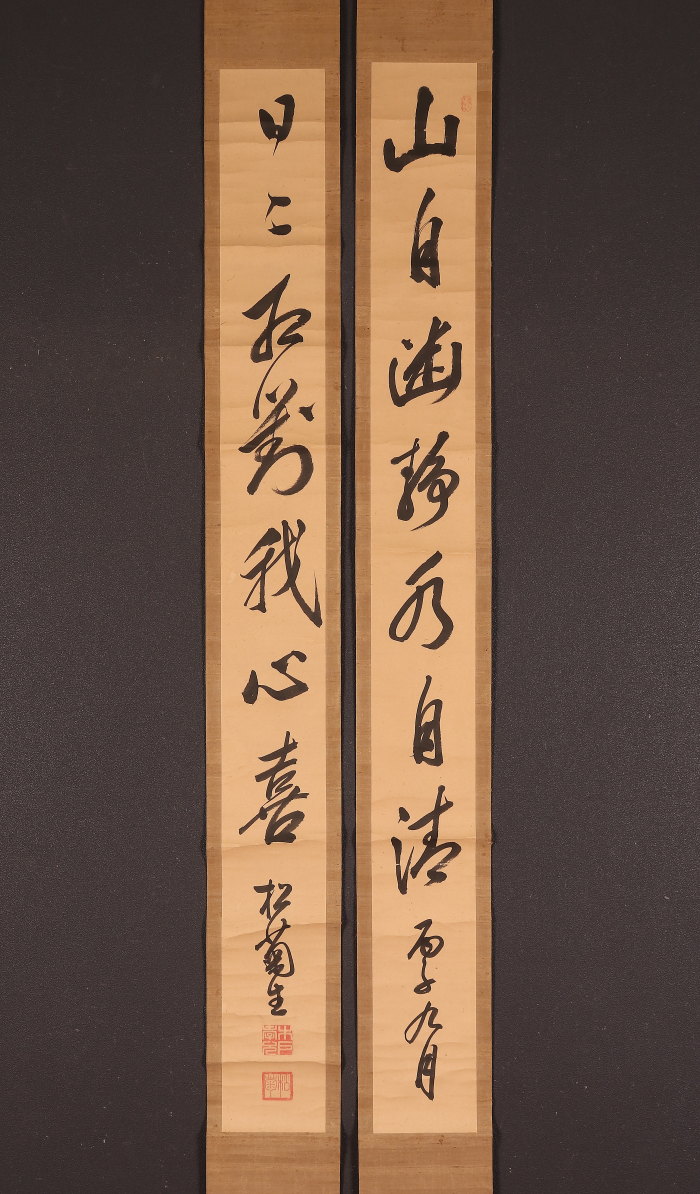 山自幽静水自清丙子九月
日々相對我心喜松菊生